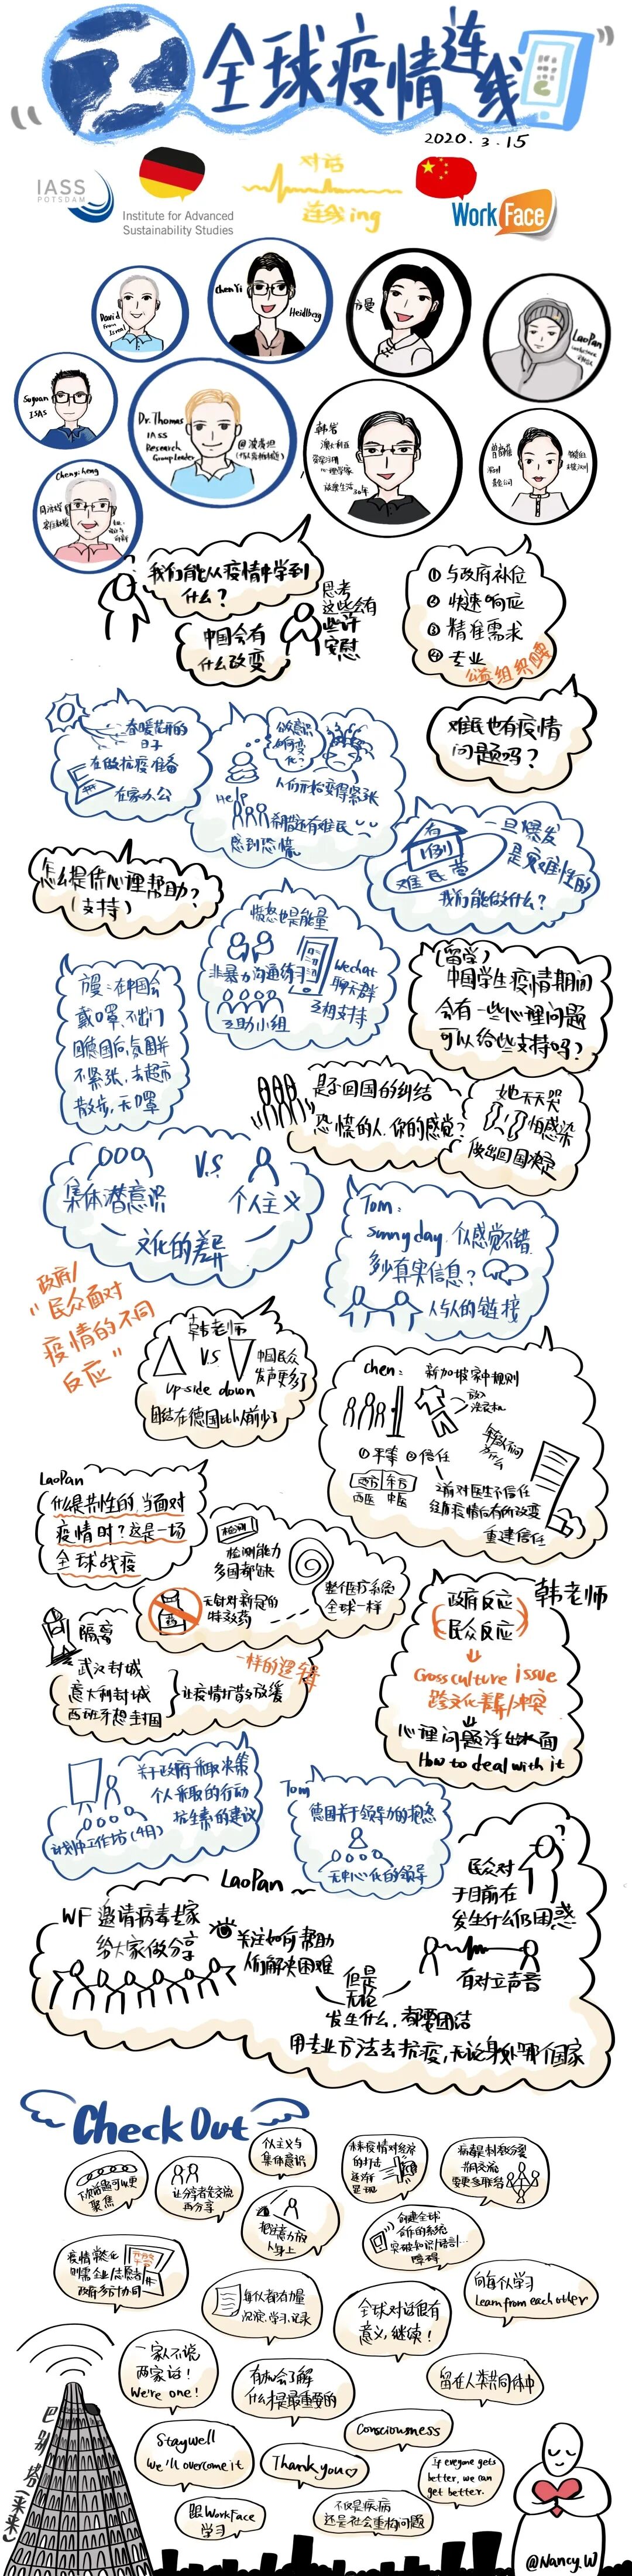 全球疫情连线
2020.3.15
IASS
POTSDAM
Institute for Advanced
Sustainability Studies
对话
连线ing
Work Face
David
from
Israel
Chen Yi
Heidlberg
方曼
LaoPan
Suyuan
ISAS
Dr. Thomas
IASS
Research
Group leader
@波茨坦
韩岩
澳大利亚
心理学家
旅德生活30年
Chenyiheng
我们能从疫情中学到
什么?
中国会有
什么改变
思考
这些会有
些许
安慰
① 与政府补位
② 快速响应
③ 精准需求
④ 专业
公益组织
春暖花开的
日子
在做抗疫准备
在家办公
公众意识
如何变
化?
人们开始变得紧张
Help
希腊还有难民
感到恐慌
难民也有疫情
问题吗?
有
1例
难民营
一旦爆发
是灾难性的
我们能做什么?
怎么提供心理帮助?
(支持)
愤怒也是能量
非暴力沟通练习
互助小组
Wechat
聊天群
互相支持
(留学)
中国学生疫情期间
会有一些心理问题
可以给些支持吗?
方曼:在中国会
戴口罩,不出门
回德国后,氛围并
不紧张,去超市
散步,无口罩
是否回国的纠结
恐慌的人,你的感觉?
她天天哭
怕感染
做出回国决定
集体潜意识
V.S
个人主义
文化的差异
Tom:
sunny day. 个人感觉不错
多少真实信息?
人与人的链接
政府/
"民众面对
疫情的不同
反应"
韩老师
V.S
up side down
中国民众
发声更多了
团结在德国比以前少了
chen:
新加坡家中规则
放入
洗衣机
①平等 ②信任
西方 东方
西医 中医
之前对医生不信任
经历疫情后有所改变
重建信任
LaoPan
什么是共性的,当面对
疫情时?这是一场
全球战疫
检测
检测能力
多国都缺
无针对新冠的
特效药
整个医疗系统
全球一样
隔离
武汉封城
意大利封城
西班牙想封国
让疫情扩散放缓
一样的逻辑
韩老师
政府反应
民众反应
Cross culture issue
跨文化差异/冲突
心理问题浮出水面
How to deal with it
关于政府采取决策
个人采取的行动
抗生素的建议
计划中工作坊(4月)
Tom
德国关于领导力的概念
无中心化的领导
LaoPan
WF 邀请病毒专家
给大家做分享
关注如何帮助
人们解决困难
民众对
于目前在
发生什么仍困惑
有对立声音
但是
无论
发生什么,都要团结
用专业方法去抗疫,无论身处哪个国家
Check Out
下次话题可以更
聚焦
让分享者先交流
再分享
个人主义与
集体意识
把注意力放
人身上
未来疫情对经济
的打击
逐渐
显现
病毒是制裁分裂
共同交流
要更多联结
创建全球
合作的系统
突破知识/语言...
障碍
疫情常态化
则需企业/志愿者
政府多方协同
每个人都有力量
沉淀、学习、记录
全球对话很有
意义,继续!
向每个人学习
Learn from each other
一家人不说
两家话!
We're one!
有机会了解
什么才是最重要的
留在人类共同体中
Stay well
We'll overcome it
Consciousness
Thank you
If everyone gets
better, we can
get better.
跟 WorkFace
学习
不仅是疾病
还是社会重构问题
巴别塔(未来)
@Nancy.W